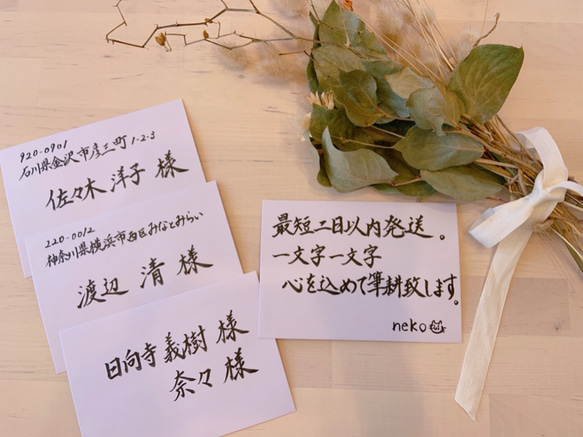 920-0901
石川県金沢市彦三町1-2-3
佐々木 洋子 様
220-0012
神奈川県横浜市西区みなとみらい
渡辺 清 様
日向寺 義樹 様
奈々 様
最短二日以内発送。
一文字一文字
心を込めて筆耕致します。
neko